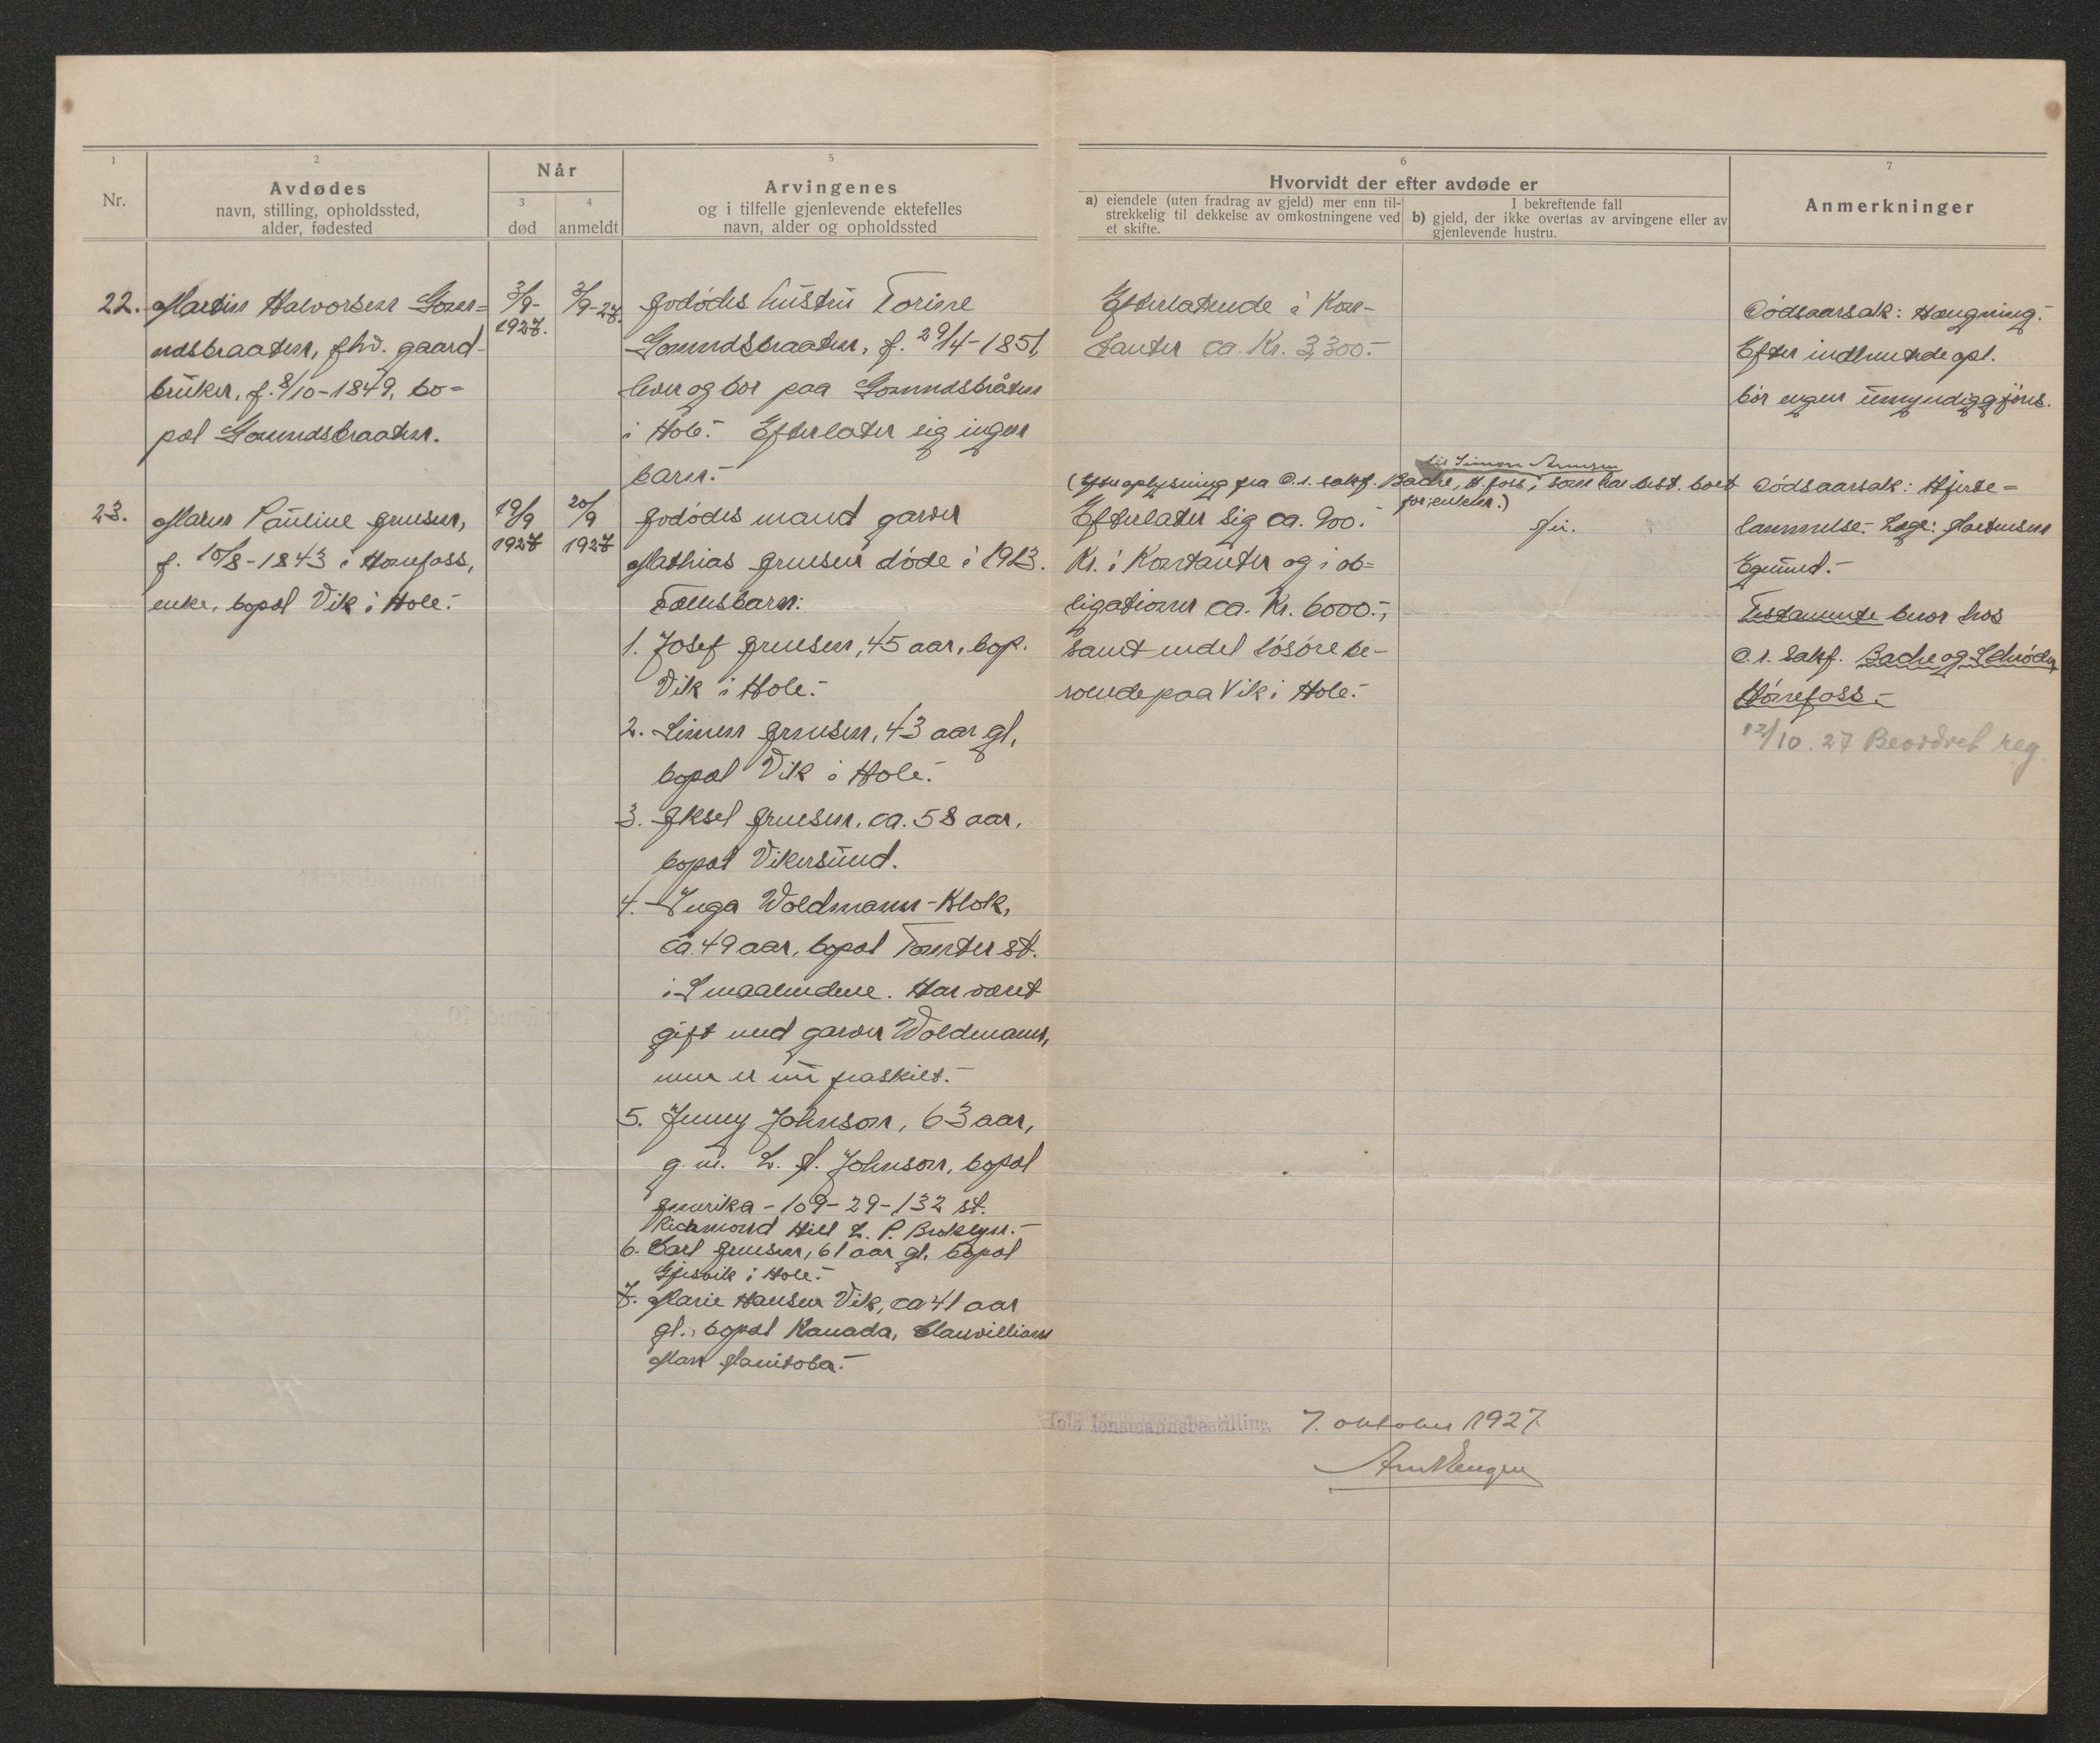 1
Nr.
2
Avdødes
navn, stilling, opholdssted,
alder, fødested
Når
3
død
4
anmeldt
5
Arvingenes
og i tilfelle gjenlevende ektefelles
navn, alder og opholdssted
6
Hvorvidt der efter avdøde er
a) eiendele (uten fradrag av gjeld) mer enn til-
strekkelig til dekkelse av omkostningene ved
et skifte.
I bekreftende fall
b) gjeld, der ikke overtas av arvingene eller av
gjenlevende hustru.
7
Anmerkninger
22.
Martin Halvorsen Gomn=
ndsbraaten, fhv. gaard-
bruker, f. 8/10-1849, bo=
pæl Gomndsbraaten.
3/9-
1927.
3/9-27.
Avdødes hustru Torine
Gomndsbraaten, f. 29/4-1851,
lever og bor paa Gomndsbråten
i Hole.- Efterlater sig ingen
barn.-
Efterlatende i Kon-
tanter ca. Kr. 3,300.-
Dødsaarsak: Hængning.-
Efter indhentede opl.
bør ingen umyndiggjøres.
23.
Maren Pauline Arnesen,
f. 10/8-1843 i Hønefoss,
enke, bopæl Vik i Hole.-
19/9
1927
20/9
1927
Avdødes mand garver
Mathias Arnesen døde i 1913.
Fællesbarn:
1. Josef Arnesen, 45 aar, bop.
Vik i Hole.-
2. Simen Arnesen, 43 aar gl,
bopæl Vik i Hole.-
3. Aksel Arnesen, ca. 58 aar,
bopæl Vikersund.
4. Inga Woldmann-Klok,
ca. 49 aar, bopæl Tomter st.
i Smaalendene. Har været
gift med garver Woldmann,
men er nu fraskilt.-
5. Jenny Johnson, 63 aar,
g.m. L. A. Johnson, bopæl
Amerika - 109-29-132 st.
Richmond Hill L. P. Broklyn.-
6. Carl Arnesen, 61 aar gl, bopæl
Gjesvik i Hole.-
7. Marie Hansen Vik, ca 41 aar
gl., bopæl Kanada, Clanwilliam
Man Manitoba.-
til Simen Arnesen
(Efter oplysning fra O.r. sakf. Bache, H.foss, som har best. boet
for enken.)
Efterlater sig ca. 900.-
Kr. i Kontanter og i ob=
ligationer ca. Kr. 6000.-,
samt endel løsøre be-
roende paa Vik i Hole.-
Nei.
Dødsaarsak: Hjerte=
lammelse.- Læge: Martinsen
Egeund.-
Testamente beror hos
O.r. Sakf. Bache og Schrøder,
Hønefoss.-
12/10.27 Beordret reg.
Hole lensmannsbestilling, 7. oktober 1927.